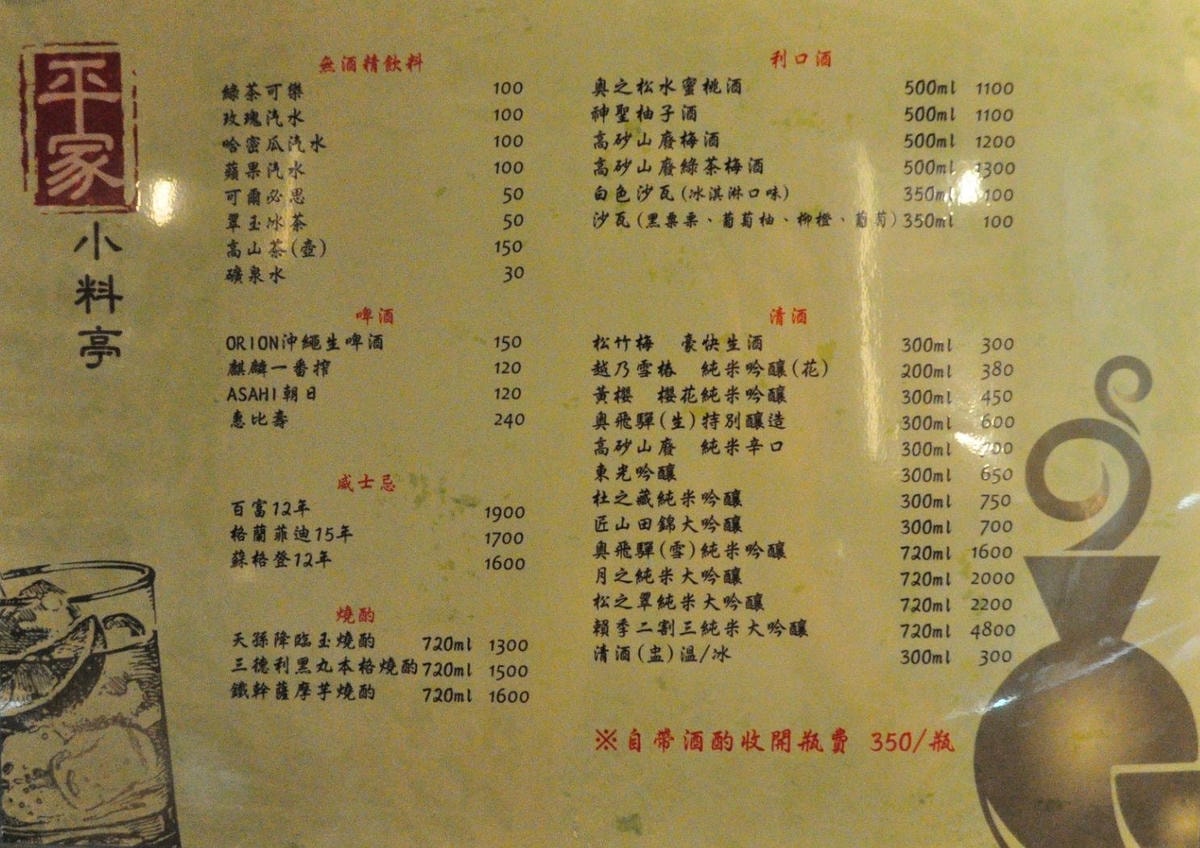 平家
小料亭
無酒精飲料
綠茶可樂 100
玫瑰汽水 100
哈密瓜汽水 100
蘋果汽水 100
可爾必思 50
翠玉冰茶 50
高山茶(壺) 150
礦泉水 30
啤酒
ORION沖繩生啤酒 150
麒麟一番搾 120
ASAHI朝日 120
惠比壽 240
威士忌
百富12年 1900
格蘭菲迪15年 1700
蘇格登12年 1600
燒酌
天孫降臨玉燒酌 720ml 1300
三德利黑丸本格燒酌 720ml 1500
鐵幹薩摩芋燒酌 720ml 1600
利口酒
奧之松水蜜桃酒 500ml 1100
神聖柚子酒 500ml 1100
高砂山廢梅酒 500ml 1200
高砂山廢綠茶梅酒 500ml 1300
白色沙瓦(冰淇淋口味) 350ml 100
沙瓦(黑栗栗、葡萄柚、柳橙、葡萄) 350ml 100
清酒
松竹梅 豪快生酒 300ml 300
越乃雪椿 純米吟釀(花) 200ml 380
黃櫻 櫻花純米吟釀 300ml 450
奧飛驒(生)特別釀造 300ml 600
高砂山廢 純米辛口 300ml 700
東光吟釀 300ml 650
杜之藏純米吟釀 300ml 750
匠山田錦大吟釀 300ml 700
奧飛驒(雪)純米吟釀 720ml 1600
月之純米大吟釀 720ml 2000
松之翠純米大吟釀 720ml 2200
賴季二割三純米大吟釀 720ml 4800
清酒(盅)溫/冰 300ml 300
※自帶酒酌收開瓶費 350/瓶